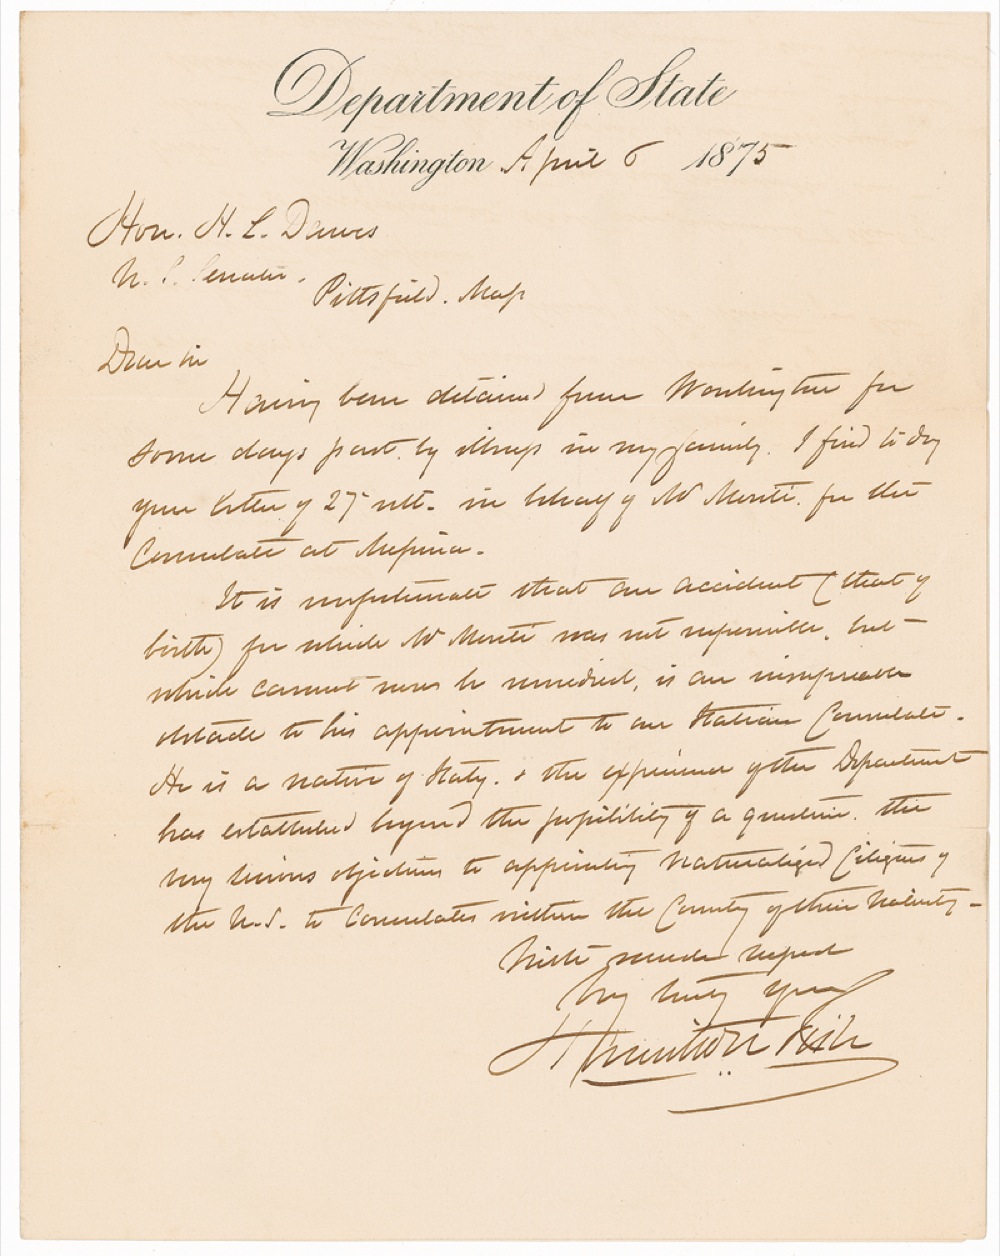 Department of State
Washington April 6 1875
Hon. H. L. Dawes
U. S. Senator.
Pittsfield. Mass
Dear Sir
Having been detained from Washington for
some days past by illness in my family. I find to day
your letter of 27th ult. in behalf of Mr Monti. for the
Consulate at Messina.
It is unfortunate that an accident (that of
birth) for which Mr Monti was not responsible, but
which cannot now be remedied, is an insuperable
obstacle to his appointment to an Italian Consulate.
He is a native of Italy. & the experience of this Department
has established beyond the possibility of a question. the
very serious objections to appointing Naturalized Citizens of
the U.S. to Consulates within the Country of their Nativity -
With much respect
Very truly yours
Hamilton Fish